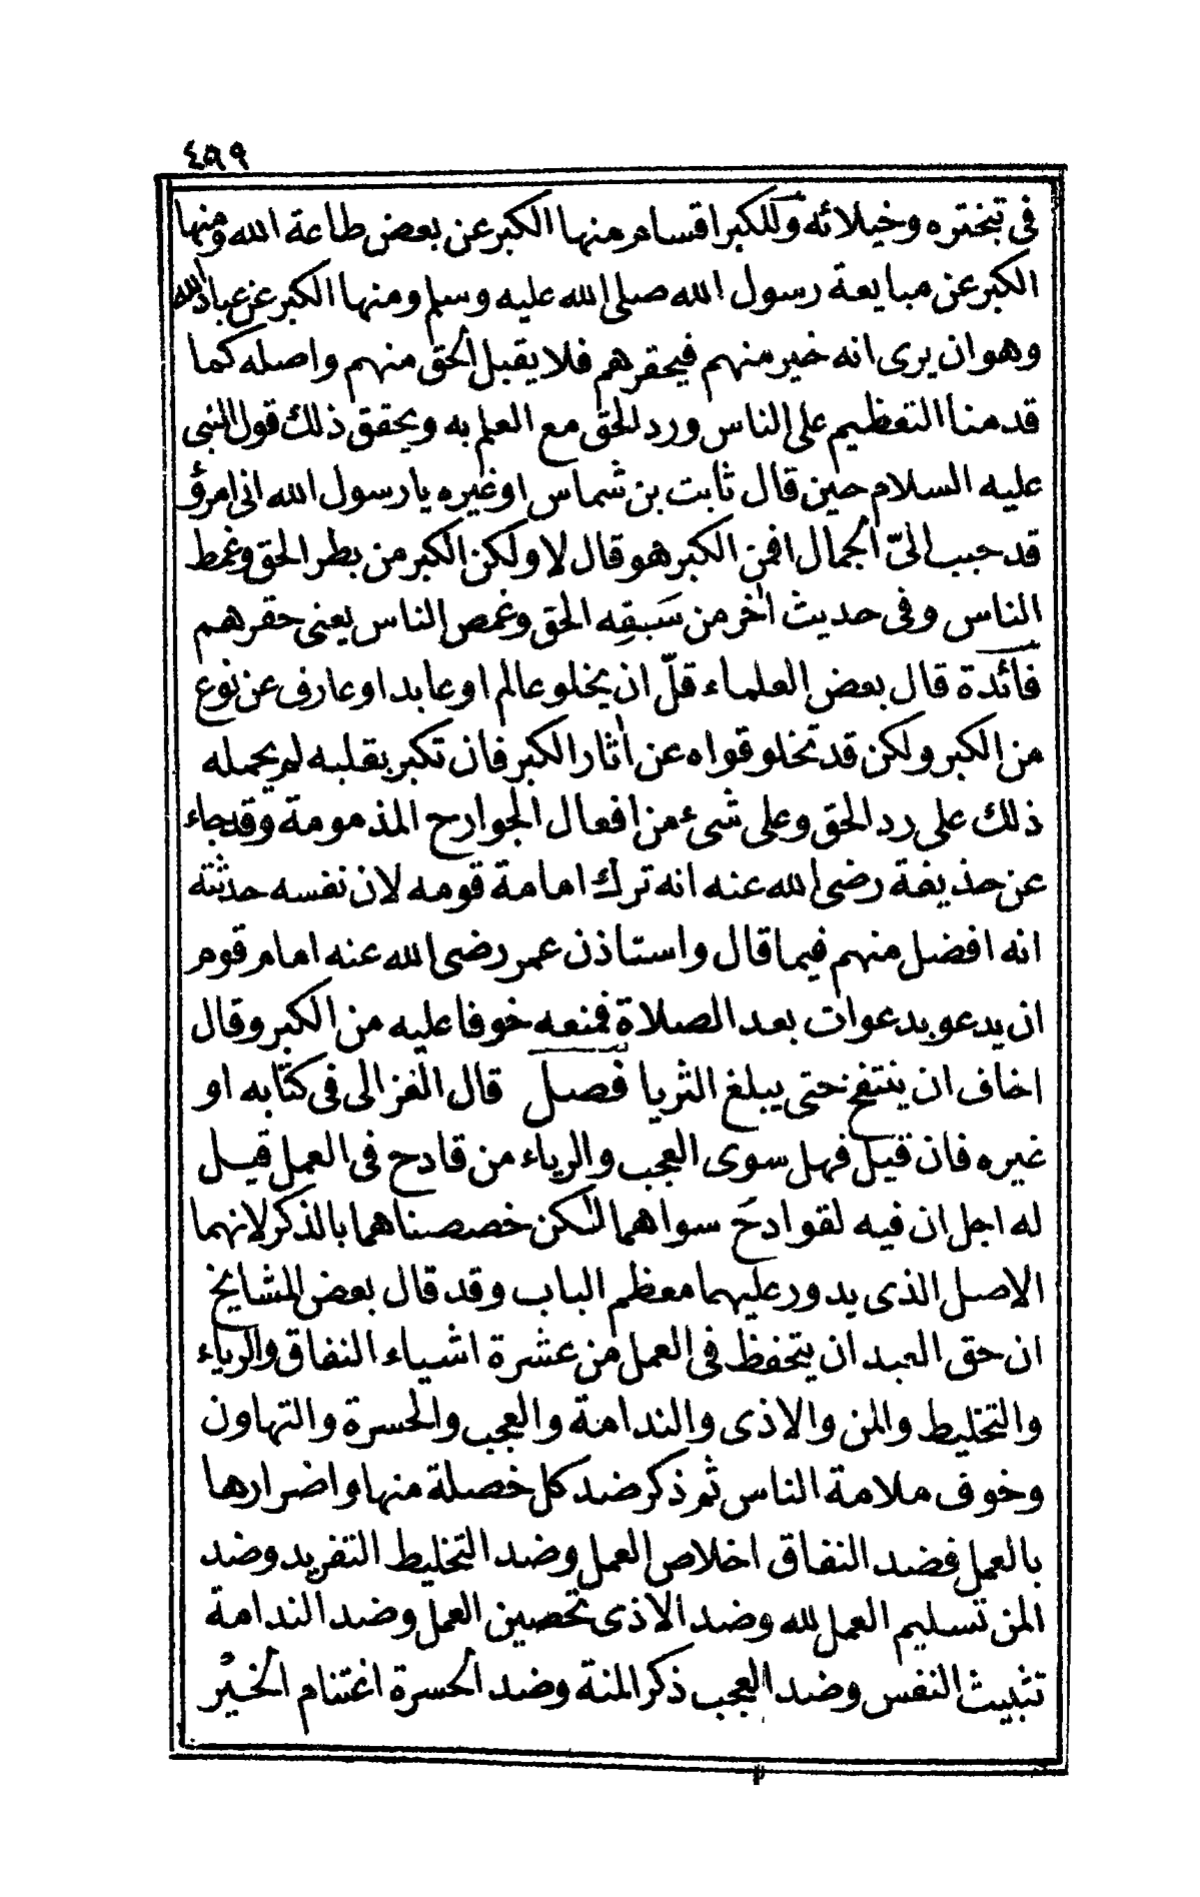 ٤٥٩
فى تبختره وخيلائه وللكبر اقسام منها الكبر عن بعض طاعة الله ومنها
الكبر عن مبايعة رسول الله صلى الله عليه وسلم ومنها الكبر عن عباد الله
وهو ان يرى انه خير منهم فيحقرهم فلا يقبل الحق منهم واصله كما
قدمنا التعظيم على الناس ورد الحق مع العلم به ويحقق ذلك قول النبى
عليه السلام حين قال ثابت بن شماس او غيره يا رسول الله انى امرؤ
قد حبب الىّ الجمال افمن الكبر هو قال لا ولكن الكبر من بطر الحق وغمط
الناس وفى حديث اٰخر من سَبقِه الحق وغمص الناس يعنى حقرهم
فائدة قال بعض العلماء قلّ ان يخلو عالم او عابد او عارف عن نوع
من الكبر ولكن قد تخلو قواه عن اٰثار الكبر فان تكبر بقلبه لم يحمله
ذلك على رد الحق وعلى شىء من افعال الجوارح المذمومة وقد جاء
عن حذيفة رضى الله عنه انه ترك امامة قومه لان نفسه حدثته
انه افضل منهم فيما قال واستاذن عمر رضى الله عنه امام قوم
ان يدعو بدعوات بعد الصلاة فمنعه خوفا عليه من الكبر وقال
اخاف ان ينتفخ حتى يبلغ الثريا فصل قال الغزالى فى كتابه او
غيره فان قيل فهل سوى العجب والرياء من قادح فى العمل قيل
له اجل ان فيه لقوادحَ سواهما لٰكن خصصناهما بالذكر لانهما
الاصل الذى يدور عليهما معظم الباب وقد قال بعض المشايخ
ان حق العبد ان يتحفظ فى العمل من عشرة اشياء النفاق والرياء
والتخليط والمن والاذى والندامة والعجب والحسرة والتهاون
وخوف ملامة الناس ثم ذكر ضد كل خصلة منها واضرارها
بالعمل فضد النفاق اخلاص العمل وضد التخليط التفريد وضد
المن تسليم العمل لله وضد الاذى تحصين العمل وضد الندامة
تثبيث النفس وضد العجب ذكر المنة وضد الحسرة اغتنام الخير